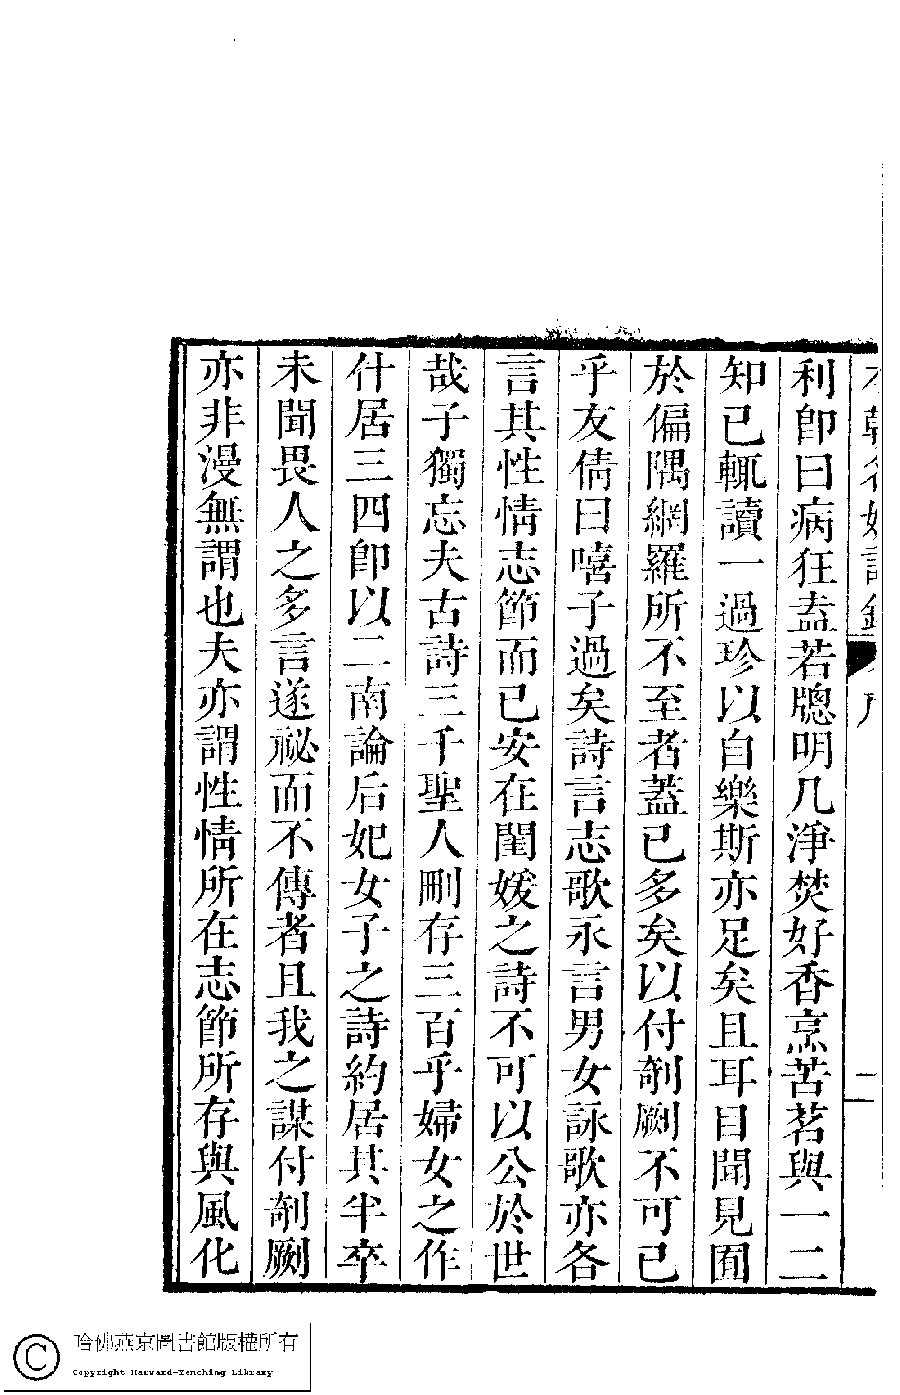 本朝名媛詩鈔 序 二
利即曰病狂盍若牕明几淨焚好香烹苦茗與一二
知已輒讀一過珍以自樂斯亦足矣且耳目聞見囿
於偏隅網羅所不至者蓋已多矣以付剞劂不可已
乎友倩曰嘻子過矣詩言志歌永言男女詠歌亦各
言其性情志節而已安在閨媛之詩不可以公於世
哉子獨忘夫古詩三千聖人刪存三百乎婦女之作
什居三四即以二南論后妃女子之詩約居其半卒
未聞畏人之多言遂祕而不傳者且我之謀付剞劂
亦非漫無謂也夫亦謂性情所在志節所存與風化
哈佛燕京圖書館版權所有
Copyright Harvard-Yenching Library